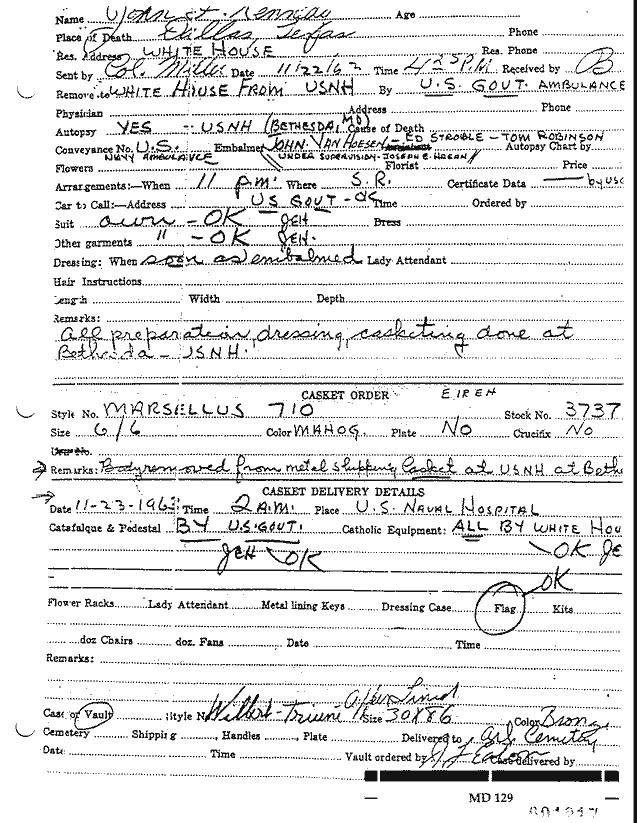 Name John F. Kennedy Age
Place of Death Dallas, Texas Phone
Res. Address WHITE HOUSE Res. Phone
Sent by Col. Miller Date 11/22/63 Time 4:25 P.M. Received by B
Remove to WHITE HOUSE FROM USNH By U.S. GOUT. AMBULANCE
Physician Address Phone
Autopsy YES - USNH (BETHESDA, MD) Cause of Death
Conveyance No. U.S. Embalmer JOHN VAN HOESEN - ED STROBLE - TOM ROBINSON Autopsy Chart by
NAVY AMBULANCE UNDER SUPERVISION - JOSEPH E. HAGAN
Flowers Florist Price
Arrangements:—When 11 p.m. Where S.R. Certificate Data by USG
Car to Call:—Address US GOUT - OK Time Ordered by
Suit own - OK JEH Dress
Other garments " - OK JEH.
Dressing: When soon as embalmed Lady Attendant
Hair Instructions
Length Width Depth
Remarks:
All preparation, dressing, casketing done at
Bethesda - USNH.
CASKET ORDER
Style No. MARSELLUS 710 Stock No. 3737
Size 6/6 Color MAHOG. Plate NO Crucifix NO
Remarks: Body removed from metal shipping Casket at USNH at Beth
CASKET DELIVERY DETAILS
Date 11-23-1963 Time 2 A.M. Place U.S. NAVAL HOSPITAL
Catafalque & Pedestal BY U.S. GOUT. Catholic Equipment: ALL BY WHITE HOU
JEH OK OK JE
OK
Flower Racks Lady Attendant Metal lining Keys Dressing Case Flag Kits
doz Chairs doz. Fans Date Time
Remarks:
Case or Vault Style No Wilbert - Triune Size 30X86 Color Bronz
Cemetery Shipping Handles Plate Delivered to Arl. Cemetery
Date Time Vault ordered by Case delivered by
MD 129